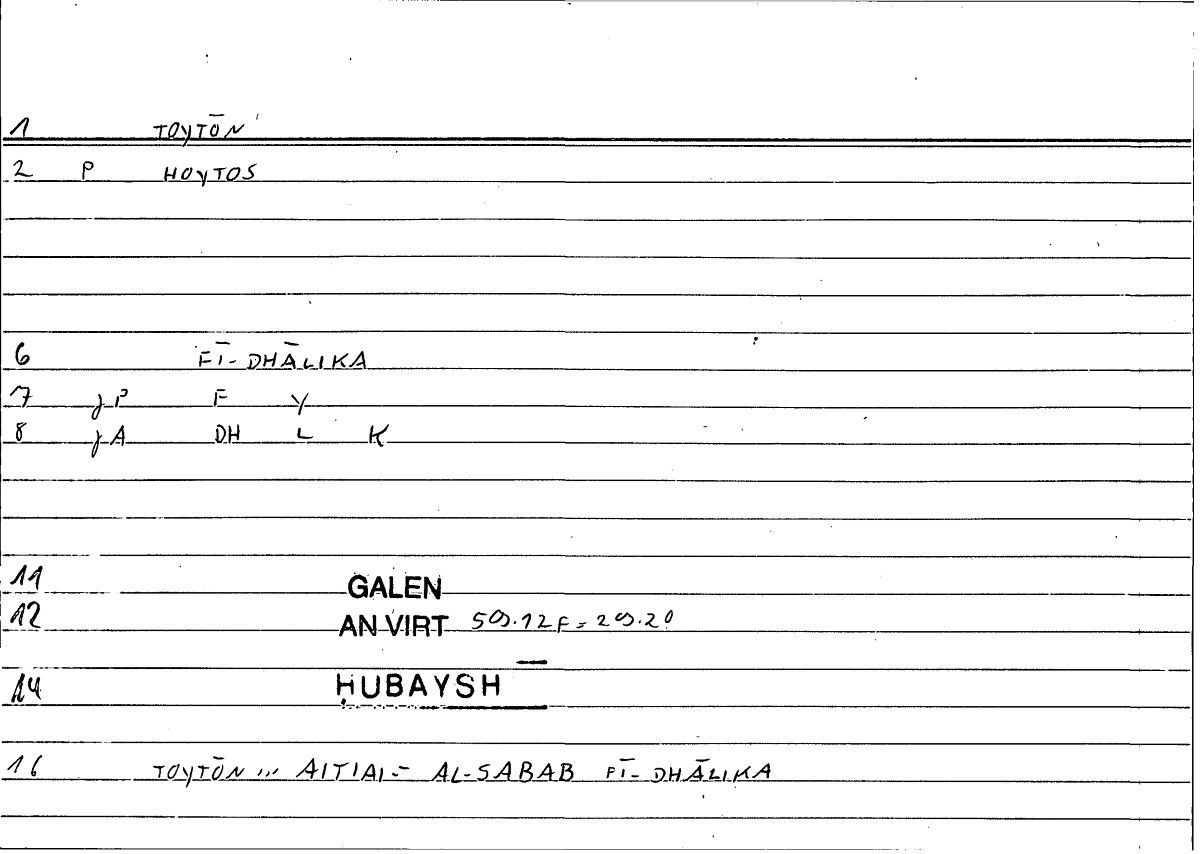 1 TOYTŌN
2 P HOYTOS
6 FĪ-DHĀLIKA
7 JP F Y
8 JA DH L K
11 GALEN
12 AN VIRT 50.12F = 20.20
14 ḤUBAYSH
16 TOYTŌN ... AITIAI = AL-SABAB FĪ-DHĀLIKA